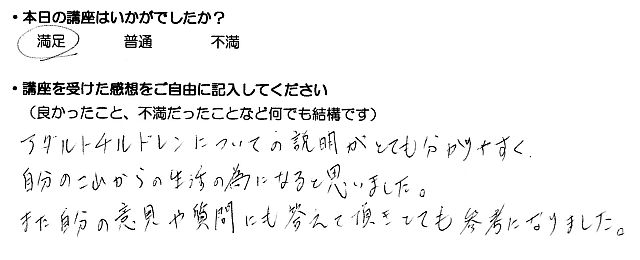 ・本日の講座はいかがでしたか？
満足 普通 不満
・講座を受けた感想をご自由に記入してください
（良かったこと、不満だったことなど何でも結構です）
アダルトチルドレンについての説明がとても分かりやすく、
自分のこれからの生活の為になると思いました。
また自分の意見や質問にも答えて頂きとても参考になりました。